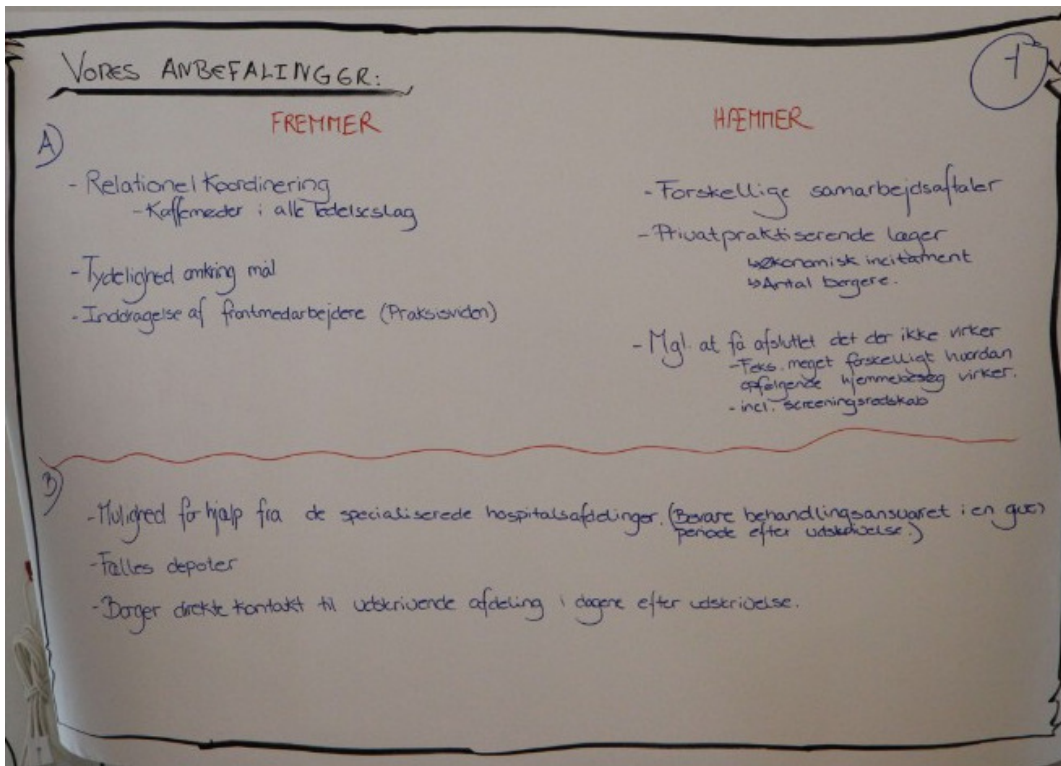 VORES ANBEFALINGER:
1
A)
FREMMER
- Relationel Koordinering
- Kaffemøder i alle ledelseslag
- Tydelighed omkring mål
- Inddragelse af frontmedarbejdere (Praksisviden)
HÆMMER
- Forskellige samarbejdsaftaler
- Privatpraktiserende læger
↳Økonomisk incitament
↳Antal borgere.
- Mgl. at få afsluttet det der ikke virker
- F.eks. meget forskelligt hvordan
opfølgende hjemmebesøg virker.
- incl. screeningsredskab
B)
- Mulighed for hjælp fra de specialiserede hospitalsafdelinger. (Bevare behandlingsansvaret i en given
periode efter udskrivelse.)
- Fælles depoter
- Borger direkte kontakt til udskrivende afdeling i dagene efter udskrivelse.